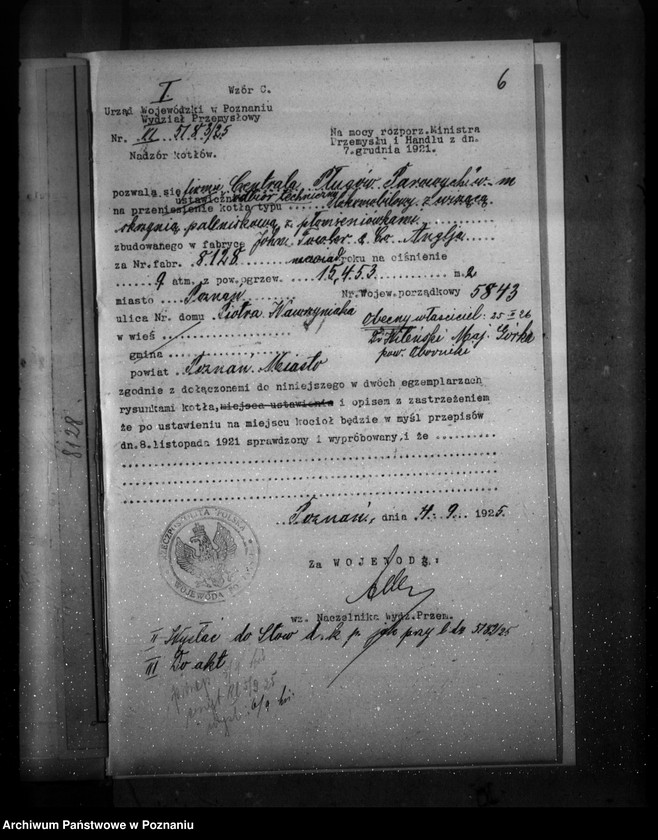 I
Wzór C.
6
Urząd Wojewódzki w Poznaniu
Wydział Przemysłowy
Nr. XI 5183/25
Nadzór kotłów.
Na mocy rozporz. Ministra
Przemysłu i Handlu z dn.
7.grudnia 1921.
pozwala się firmie Centrala Pługów Parowych
na przeniesienie kotła typu lokomobilowy z
zbudowanego w fabryce John Fowler & Co. Anglja
za Nr.fabr. 8128 roku na ciśnienie
9 atm. z pow.ogrzew. 15,453 m.2
miasto Poznań Nr.Wojew.porządkowy 5843
ulica Nr. domu Piotra Wawrzyniaka
Obecny właściciel: 25 II 26
w wieś
Maj. Górka
gmina
pow. Oborniki
powiat Poznań Miasto
zgodnie z dołączonemi do niniejszego w dwóch egzemplarzach
rysunkami kotła, miejsca ustawienia i opisem z zastrzeżeniem
że po ustawieniu na miejscu kocioł będzie w myśl przepisów
dn.8.listopada 1921 sprawdzony i wypróbowany,i że
8128
Poznań, dnia 4. 9. 1925.
RZECZPOSPOLITA POLSKA
WOJEWODA
Za WOJEWODĘ:
wz. Naczelnika Wydz.Przem.
II Wysłać do Stow. d. k. p. jak przy 5182/25
III Do akt
Archiwum Państwowe w Poznaniu